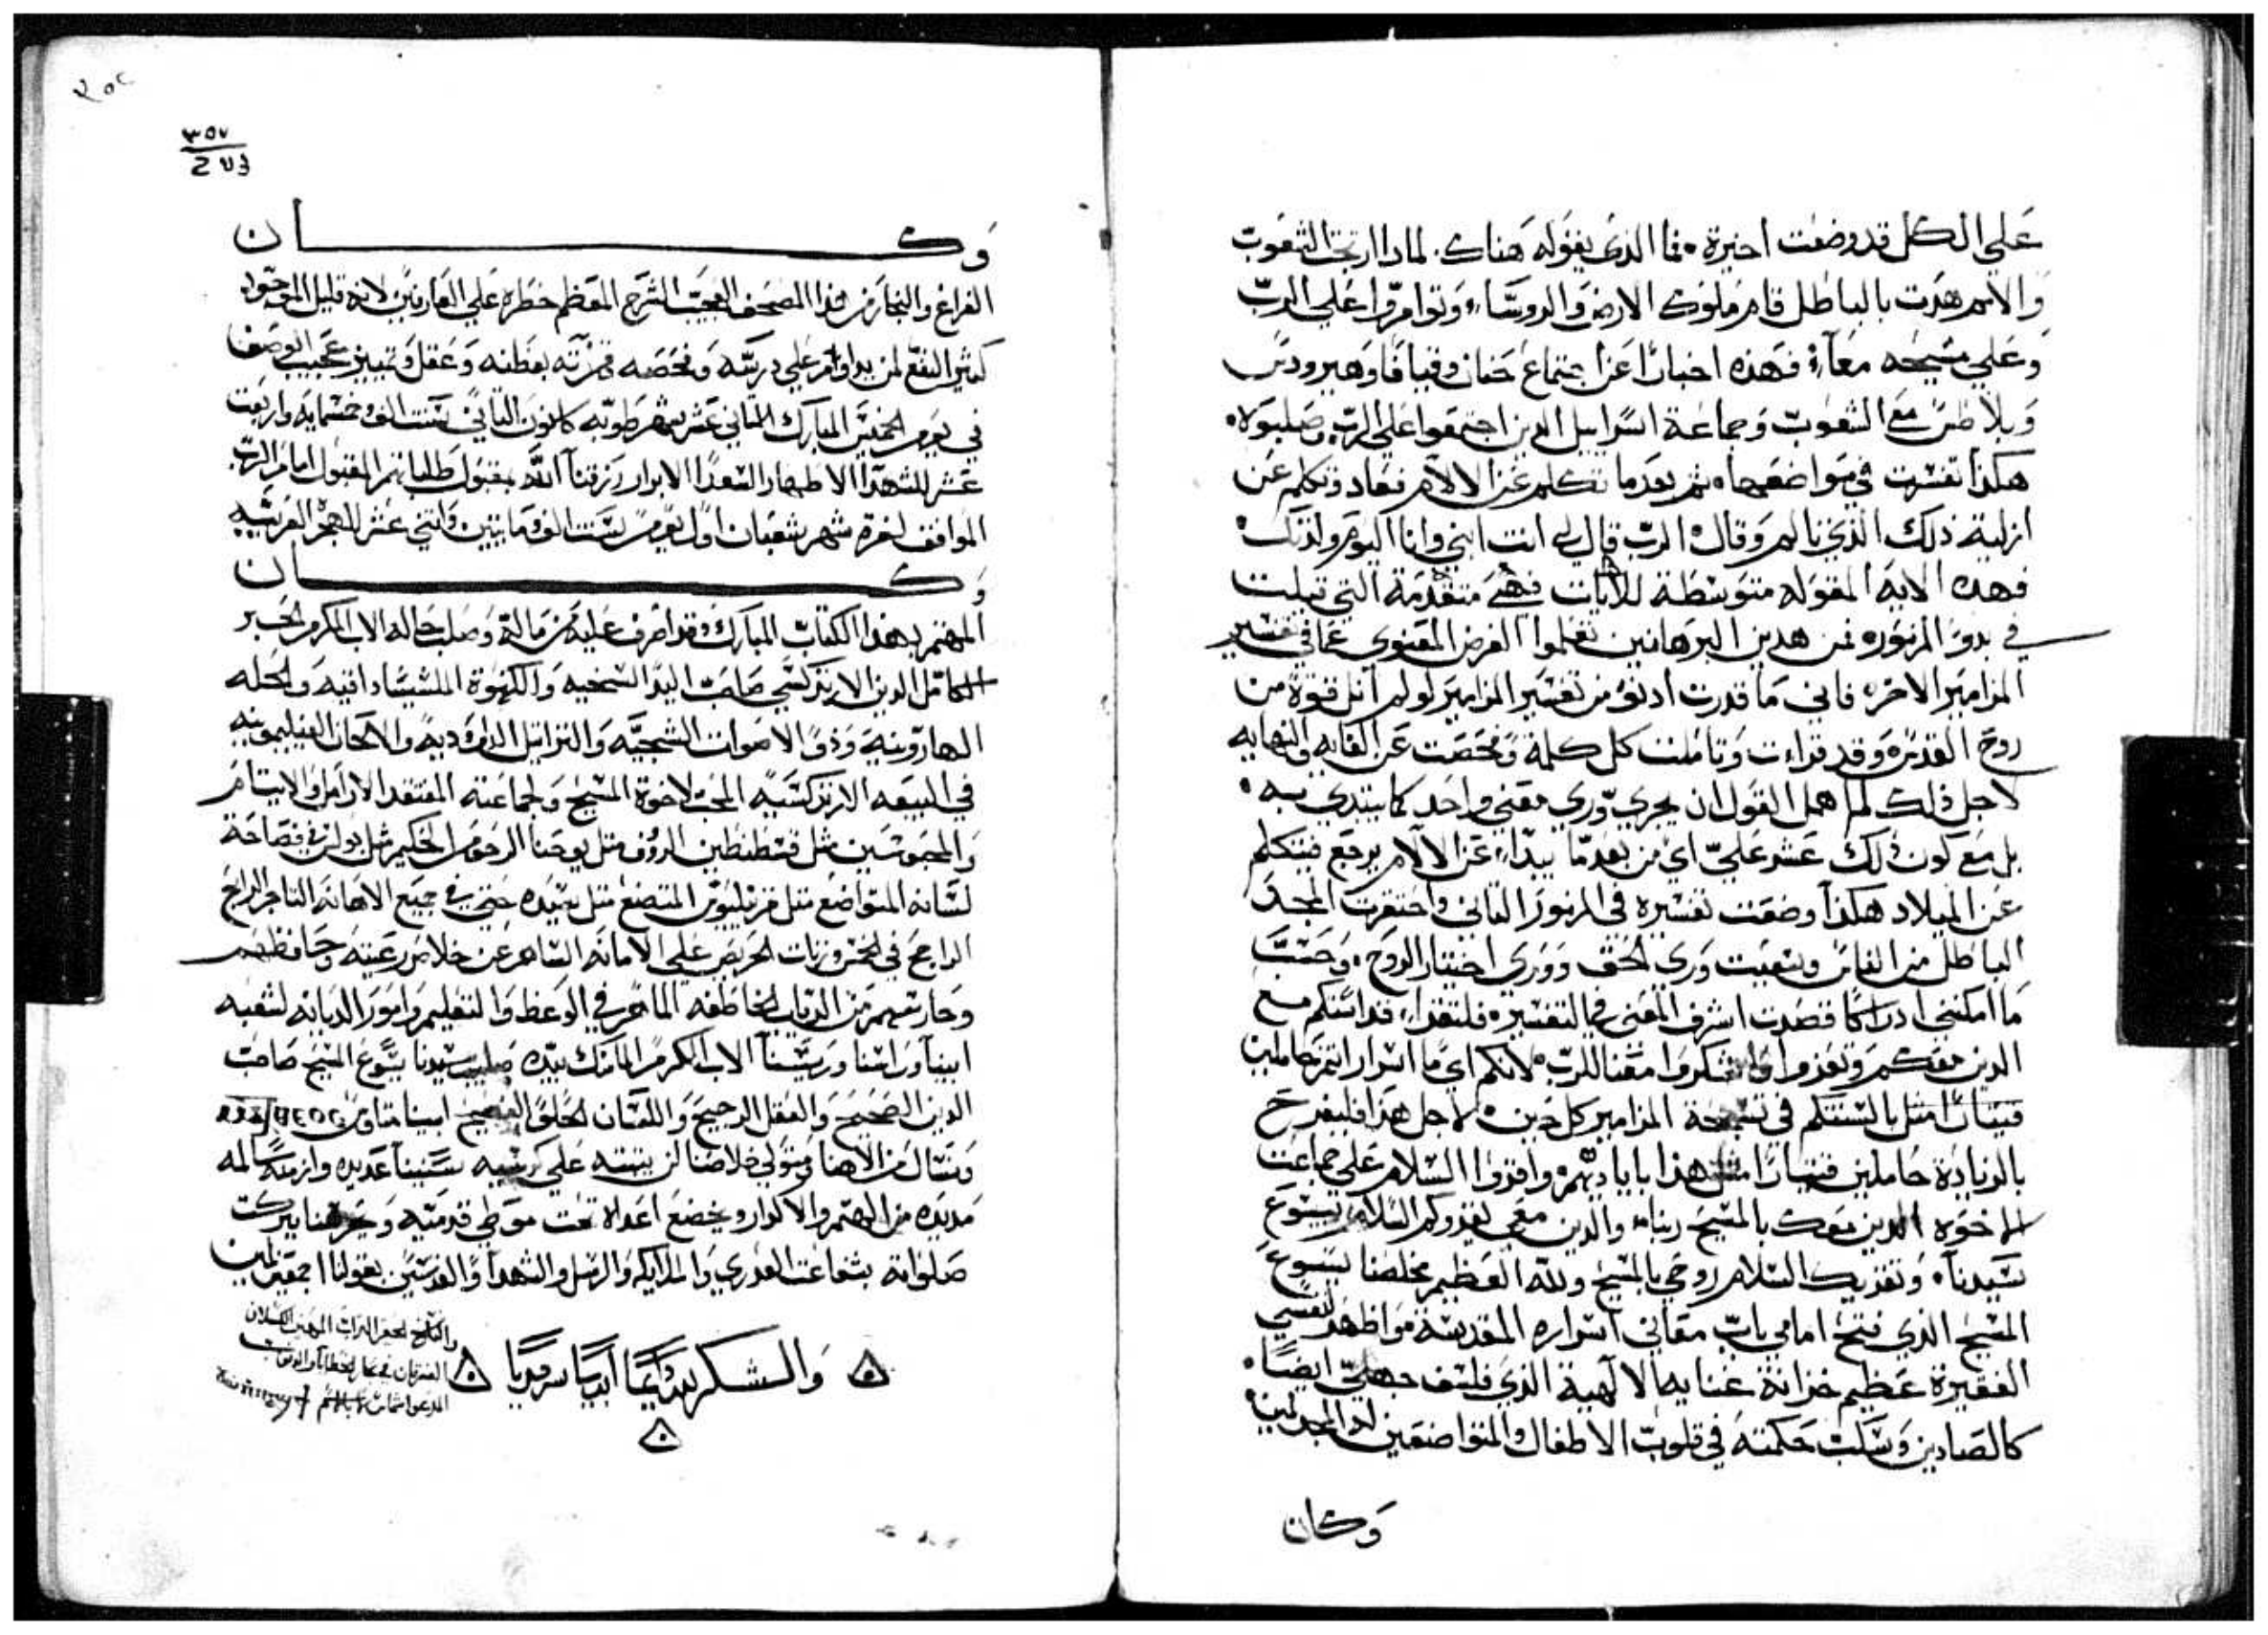 علي الكل قد وضعت اخيرة فما الذي يقوله هناك لمادا ارتجت الشعوب
والامم هدت بالباطل قام ملوك الارض والروسا وتوامروا علي الرب
وعلي مسيحه معاً فهذه اخباراً عن اجتماع حنان وقيافا وهيرودس
وبلاطس مع الشعوب وجماعة اسراييل الدين اجتمعوا علي الرب وصلبوه
هكذا تفسرت في مواضعها ثم بعد ما تكلم عن الالام فعاد وتكلم عن
ازلية ذلك الذي تالم وقال الرب قال لي انت ابني وانا اليوم ولدتك
فهده الايه المقوله متوسطة للايات فهي متقدمة التي قيلت
في بدو المزموره فمن هدين البرهانين تعلموا الغرض المعنوي عما في تفسير
المزامير الاخره فاني ما قدرت ادنو من تفسير المزامير لو لم انل قوة من
روح القدس وقد قراءت وتاملت كل كلمة وفحصت عن الغايه والنهايه
لاجل ذلك لم اهمل القول ان يجري وري معني واحد كما يبتدي به
بل مع كون ذلك عسر علي اي من بعد ما يبدا عن الالام يرجع فيتكلم
عن الميلاد هكذا وضعت تفسيره في المزمور التاني واحتقرت المجد
الباطل من الناس وسعيت وري الحق ووري اختيار الروح وحسب
ما امكنني ادراكا قصدت اشرف المعني في التفسير فلتقدا قداستكم مع
الدين معكم وتعزوا واشكروا معنا للرب لانكم اي ما اسرار انتم حاملين
قيتاراً مثل بالسنتكم في تسبحة المزامير كل حين لاجل هذا فليفرح
بالزيادة حاملين قيتاراً مثل هذا باياديهم واقروا السلام علي جماعت
الاخوه الدين معك بالمسيح ربنا والدين معي يقروكم السلام بيسوع
سيدنا وتقريك السلام روحي بالمسيح ولله العظيم مخلصنا يسوع
المسيح الدي فتح امامي باب معاني اسراره المقدسة واظهر لنفسي
الفقيرة عظيم خزانة غنايه الالهية الذي فلسف جهلي ايضاً
كالصيادين وسكب حكمته في قلوب الاطفال والمتواضعين له المجد امين
وكان
٣٥٧
وكان
الفراغ والنجاز من هذا المصحف العجيب الشرح المعظم خطره علي العارفين لانه قليل الموجود
كثير النفع لمن يداوم علي درسه وفحصه وقراته بفطنه وعقل وتمييز عجيب الوصف
في يوم الخميس المبارك التاني عشر شهر طوبه كانون التاني سنت الف وخمسمايه واربعت
عشر للشهدا الاطهار السعدا الابرار رزقنا الله بقبول طلباتهم المقبول امام الرب
الموافق لغرة شهر شعبان اول يوم سنت الف ومايتين واتني عشر للهجره القريشيه
وكان
المهتم بهذا الكتاب المبارك وقد اصرف عليه من ماله وصلب حاله الاب المكرم الحبر
الكامل الدين الارتدكسي صاحب اليد السخيه والكهنوة الملشيساداقيه والحله
الهارونيه وذو الاصوات الشجيه والتراتيل الداوديه والالحان الفيليمونيه
في البيعه الارتدكسيه المحب لاخوة المسيح ولجماعته المفتقد الارامل والايتام
والمحبوسين مثل قسطنطين الرؤف مثل يوحنا الرحوم الحكيم مثل بولس في فصاحة
لسانه المتواضع مثل قرنيليوس المتضع مثل سيده حتي في جميع الاهانه التاجر الرابح
الرابح في الخمس وزنات الحريص علي الامانه الساهر عن خلاص رعيته وحافظهم
وحارسهم من الدياب الخاطفه الماهر في الوعظ والتعليم وامور الديانه لشعبه
ابينا وراسنا وريسنا الاب المكرم الماسك بيده صليب سيدنا يسوع المسيح صاحب
الدين الصحيح والعقل الرجيح واللسان الحلو الفصيح ابينا متاوس
ونسال من الاهنا ومتولي خلاصنا ان يثبته علي كرسيه سنيناً عديده وازمنه سالمه
مديده من الهم والاكدار ويخضع اعداه تحت موطي قدميه ويحرسنا ببركت
صلواته بشفاعت العدري والملايكه والرسل والشهدا والقديسين بقولنا اجمعين امين
والشكر لله دايماً ابدياً سرمدياً